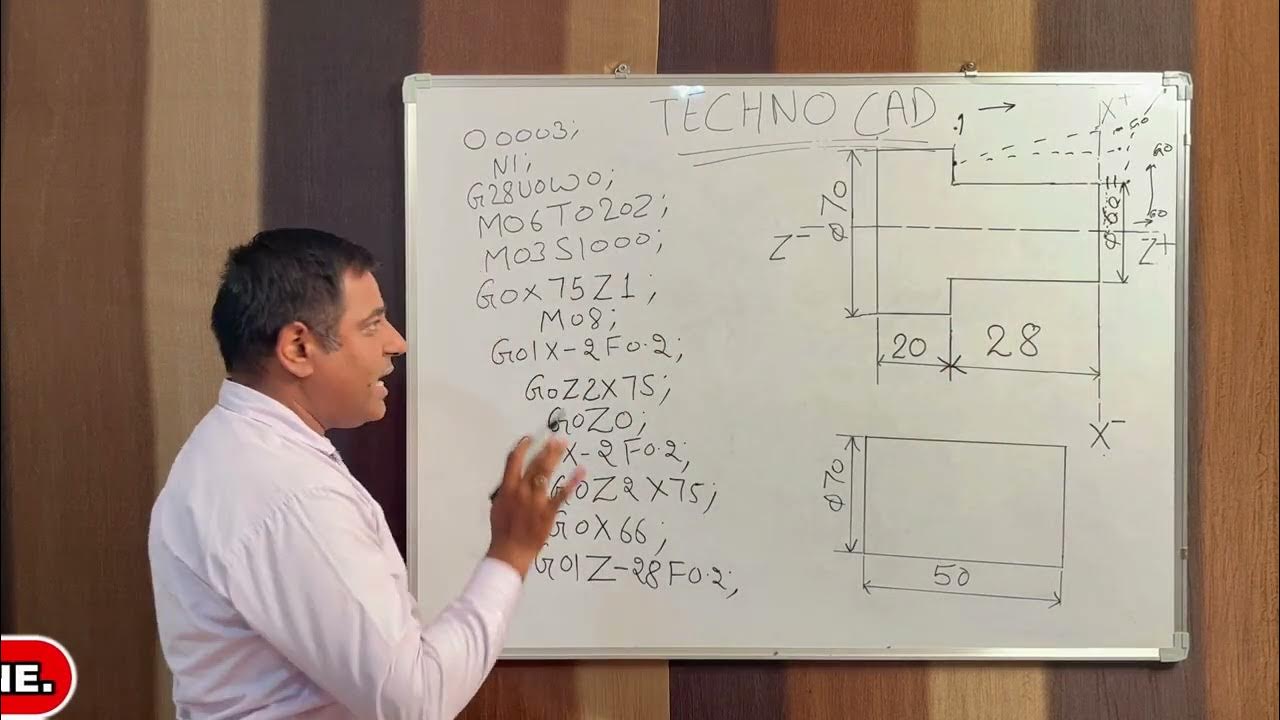 TECHNO CAD
O0003;
N1;
G28U0W0;
M06T0202;
M03S1000;
G0X75Z1;
M08;
G01X-2F0.2;
G0Z2X75;
G0Z0;
X-2F0.2;
G0Z2X75;
G0X66;
G01Z-28F0.2;
.1
X+
G0
G0
G0
Ø70
Z-
Z+
20
28
X-
Ø70
50
NE.